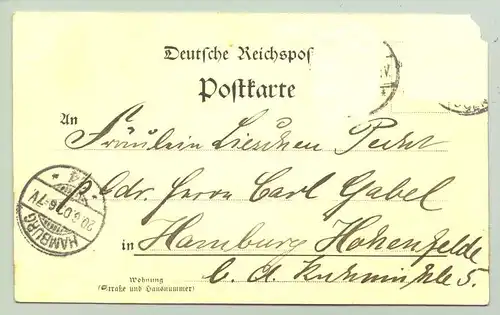 Deutsche Reichspos
Postkarte
An
Fräulein Lieschen Pecht
Adr. Herrn Carl Gabel
in Hamburg Hohenfelde
b. d. Kuhmühle 5.
Wohnung
(Straße und Hausnummer)
HAMBURG
20.6.0 6-7V